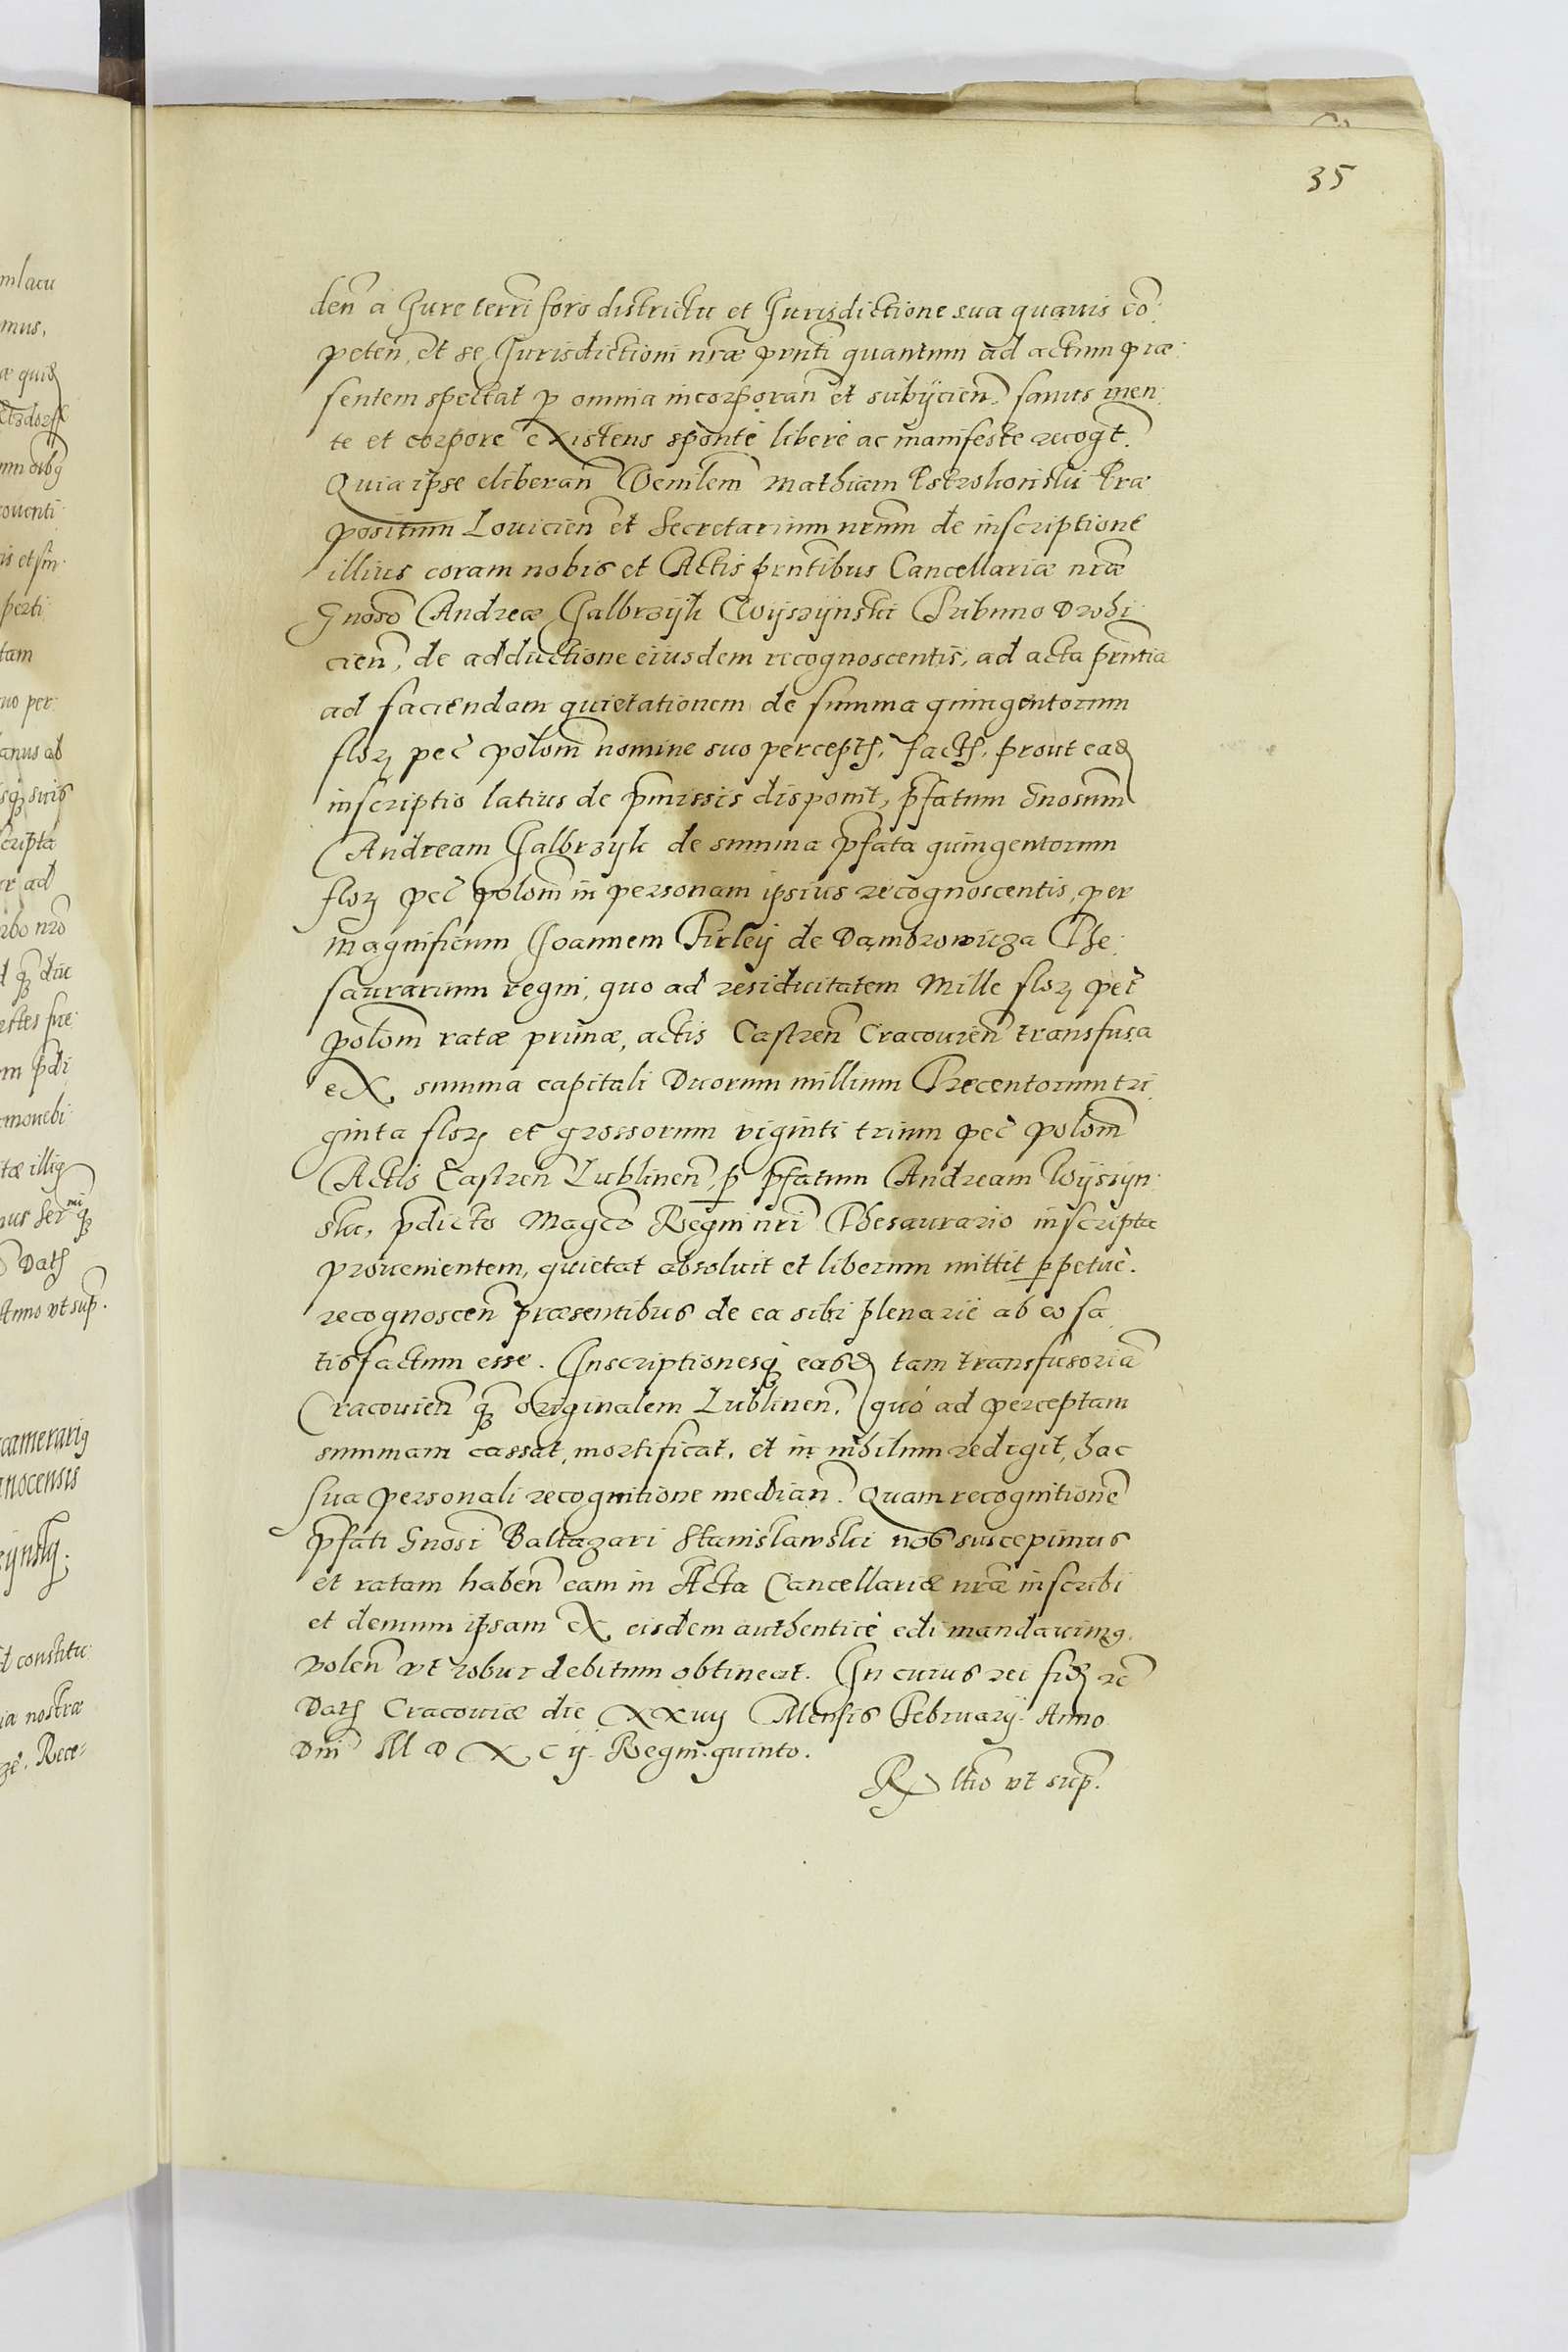 35
den̄ a Jure terri foro districtu et Jurisdictione sua quauis co͠:
peten̄, et se Jurisdictioni nr̄ae pn̄ti quantum ad actum præ:
sentem spectat p omnia incorporan̄ et subijcien̄, sanus men:
te et corpore existens sponte libere ac manifeste recog̃t.
Quia ipse eliberan̄ Ven̄lem Mathiam Pstrokonski Præ
positum Louicien̄ et Secretarium nr̄um de inscriptione
illius coram nobis et Actis pn̄tibus Cancellariæ nr̄æ
Gn̄oso Andreæ Galbrzijk Wyszijnski Tribuno Drohi
cien̄, de adductione eiusdem recognoscentis, ad acta pn̄tia
ad faciendam quietationem de summa quingentorum
flor̨ pec̄ polom̄ nomine suo percept̨, fact̨, prout ead̨
inscriptio latius de pm̄issis disponit, pfatum Gn̄osum
Andream Galbrzijk de summa pfata quingentorum
flor̨ pec̄ polom̄ in personam ipsius recognoscentis, per
magnificum Joannem Firleij de Dambrowicza The:
saurarium regni, quo ad residuitatem Mille flor̨ pec̄
polom̄ ratæ primæ, actis Castren̄ Cracouien̄ transfusa
ex summa capitali Duorum millium Trecentorum tri
ginta flor̨ et grossorum viginti trium pec̄ polom̄
Actis Castren̄ Lublinen̄, p pfatum Andream Wijszijn:
ski, pdicto Mag̃co Regni nr̄i Thesaurario inscripta
prouenientem, quietat absoluit et liberum mittit ppetue.
recognoscen̄ præsentibus de ea sibi plenarie ab eo sa
tisfactum esse. Inscriptionesq̨ easd̨ tam transfusoriā
Cracouien̄ q̨̄ originalem Lublinen̄, quó ad perceptam
summam cassat, mortificat, et in nihilum redigit, hac
sua personali recognitione median̄. Quam recognitionē
pfati Gn̄osi Baltazari Stanislawski nos suscepimus
et ratam haben̄ eam in Acta Cancellariæ nr̄æ inscribi
et demum ipsam ex eisdem authentice edi mandauimꝰ.
volen̄ vt robur debitum obtineat. In cuius rei fid̨ rc̄
Dat̨ Cracouiæ die xxvij Mensis Februarij. Anno
Dn̄i M D X C ij. Regni quinto.
R̨ ltio vt sup̄.